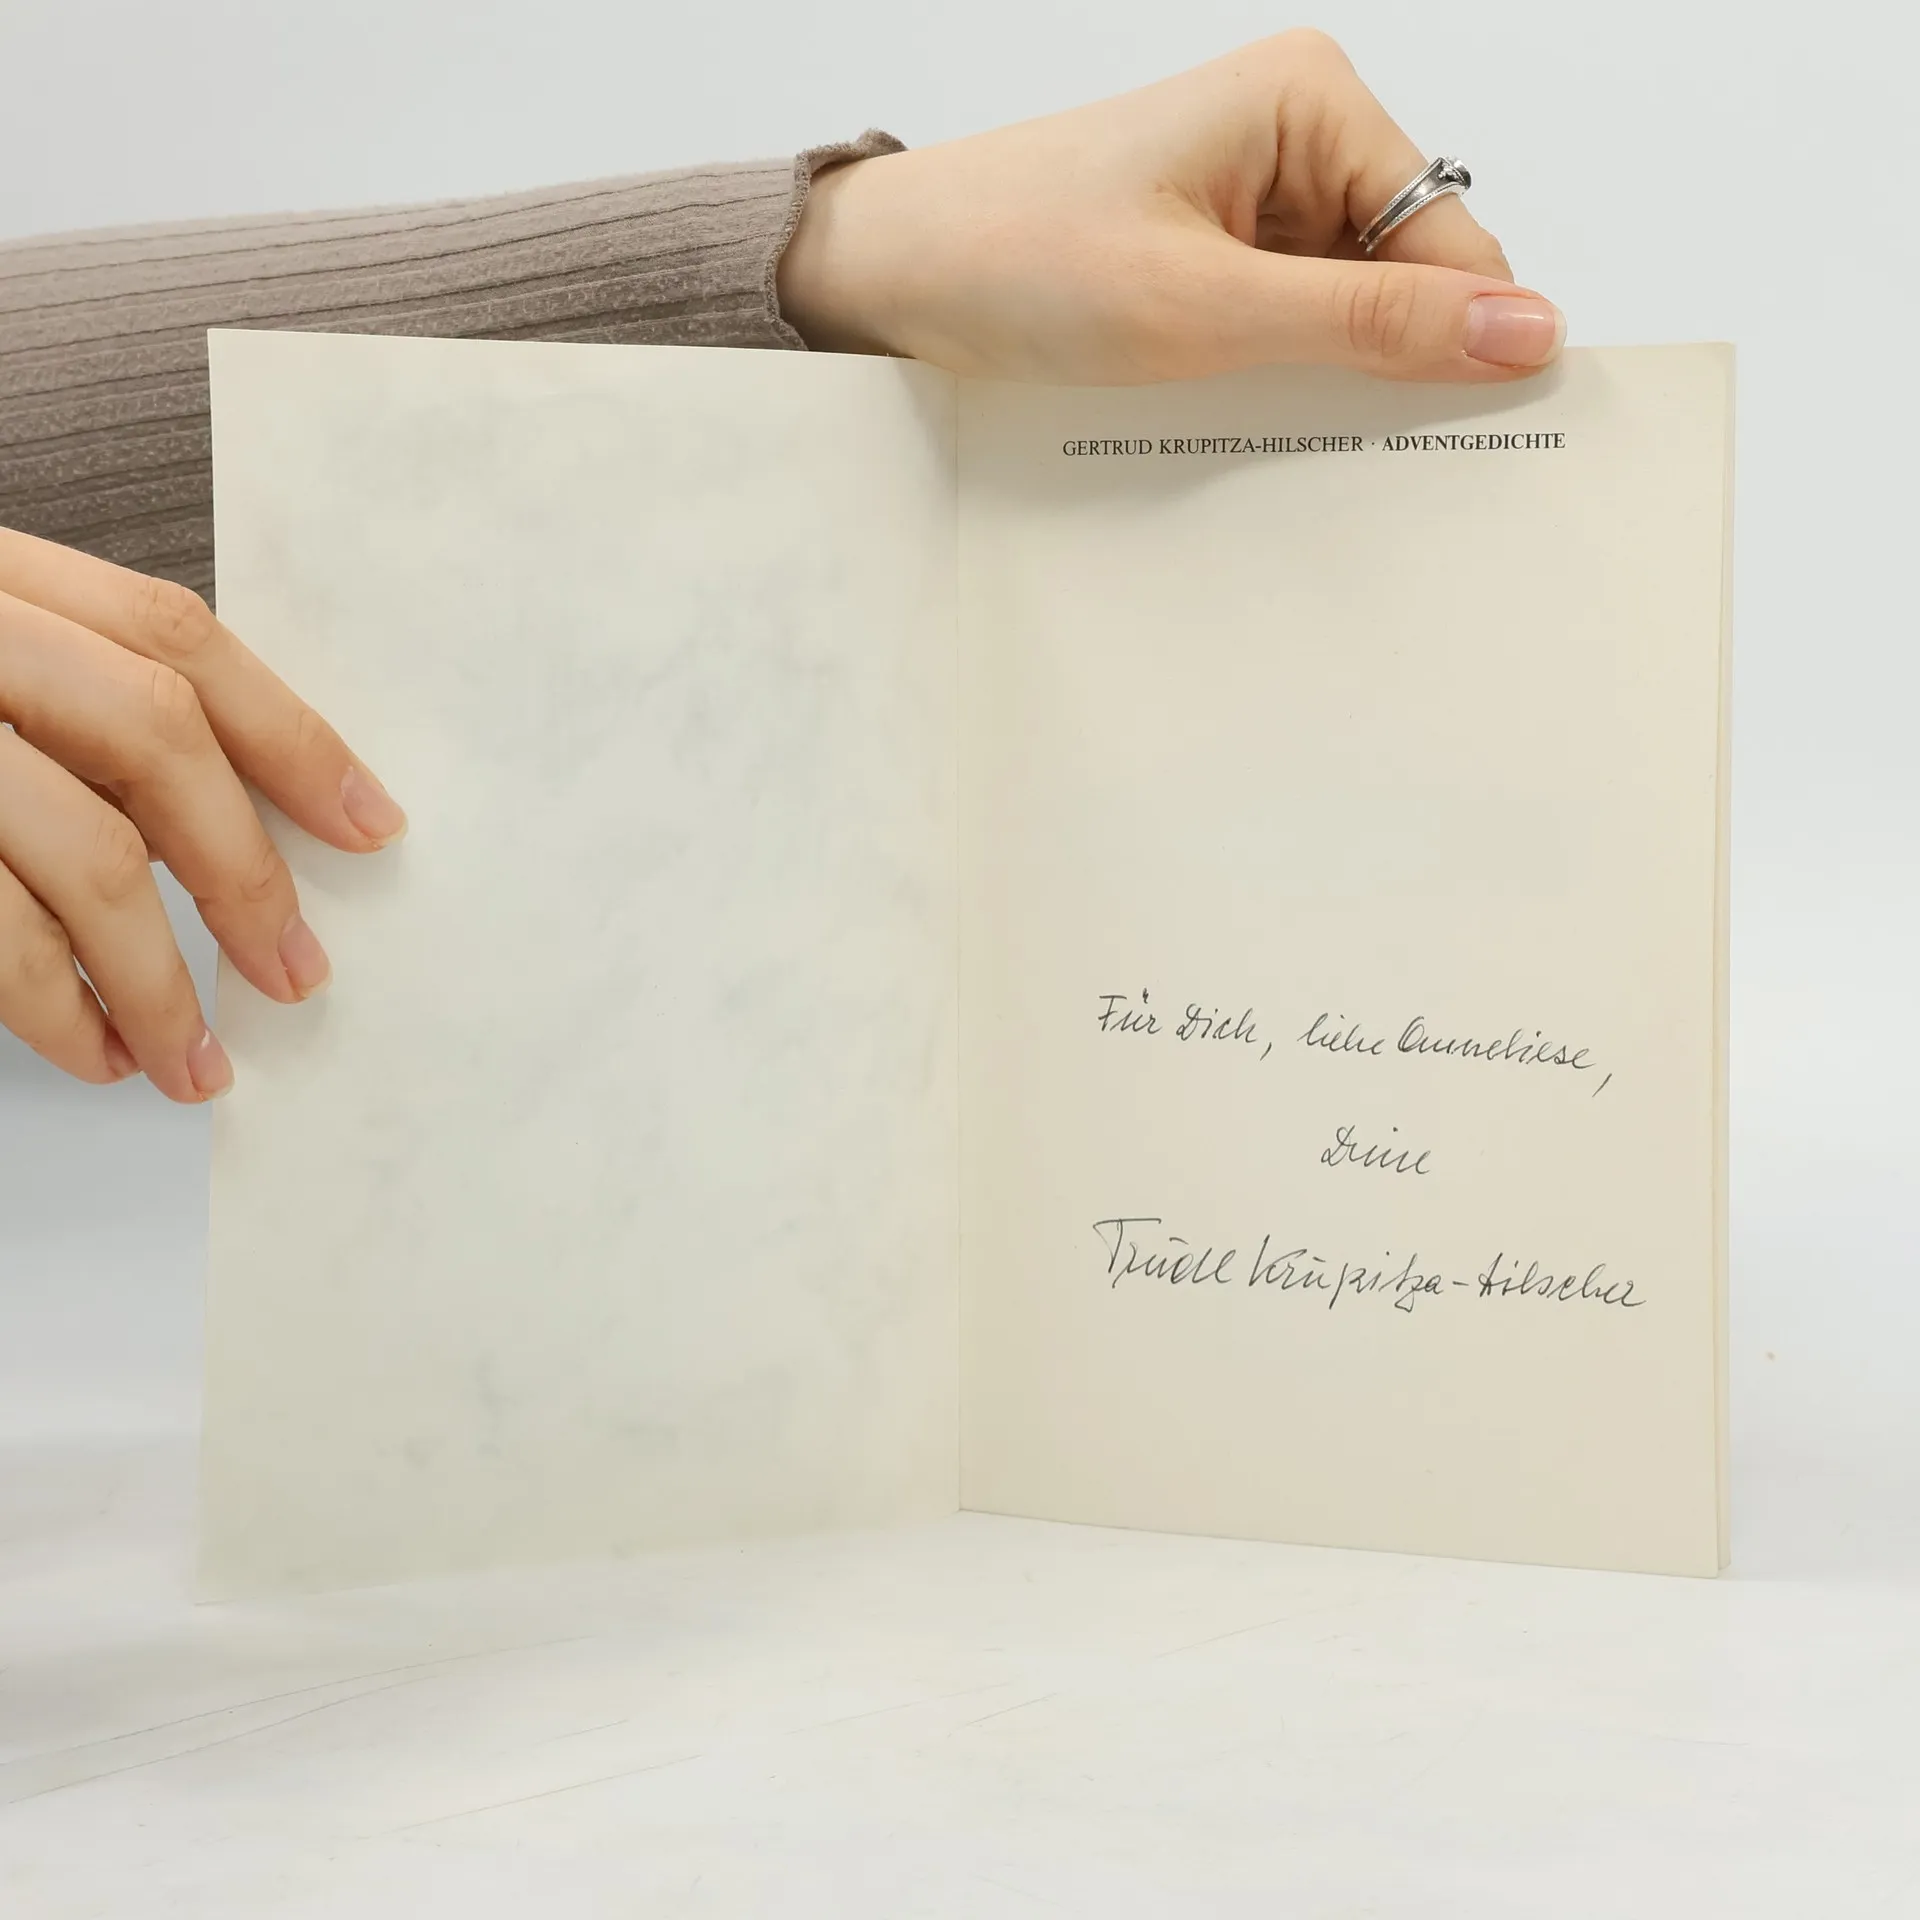 GERTRUD KRUPITZA-HILSCHER · ADVENTGEDICHTE
Für Dich, liebe Anneliese,
Deine
Trudl Krupitza-Hilscher